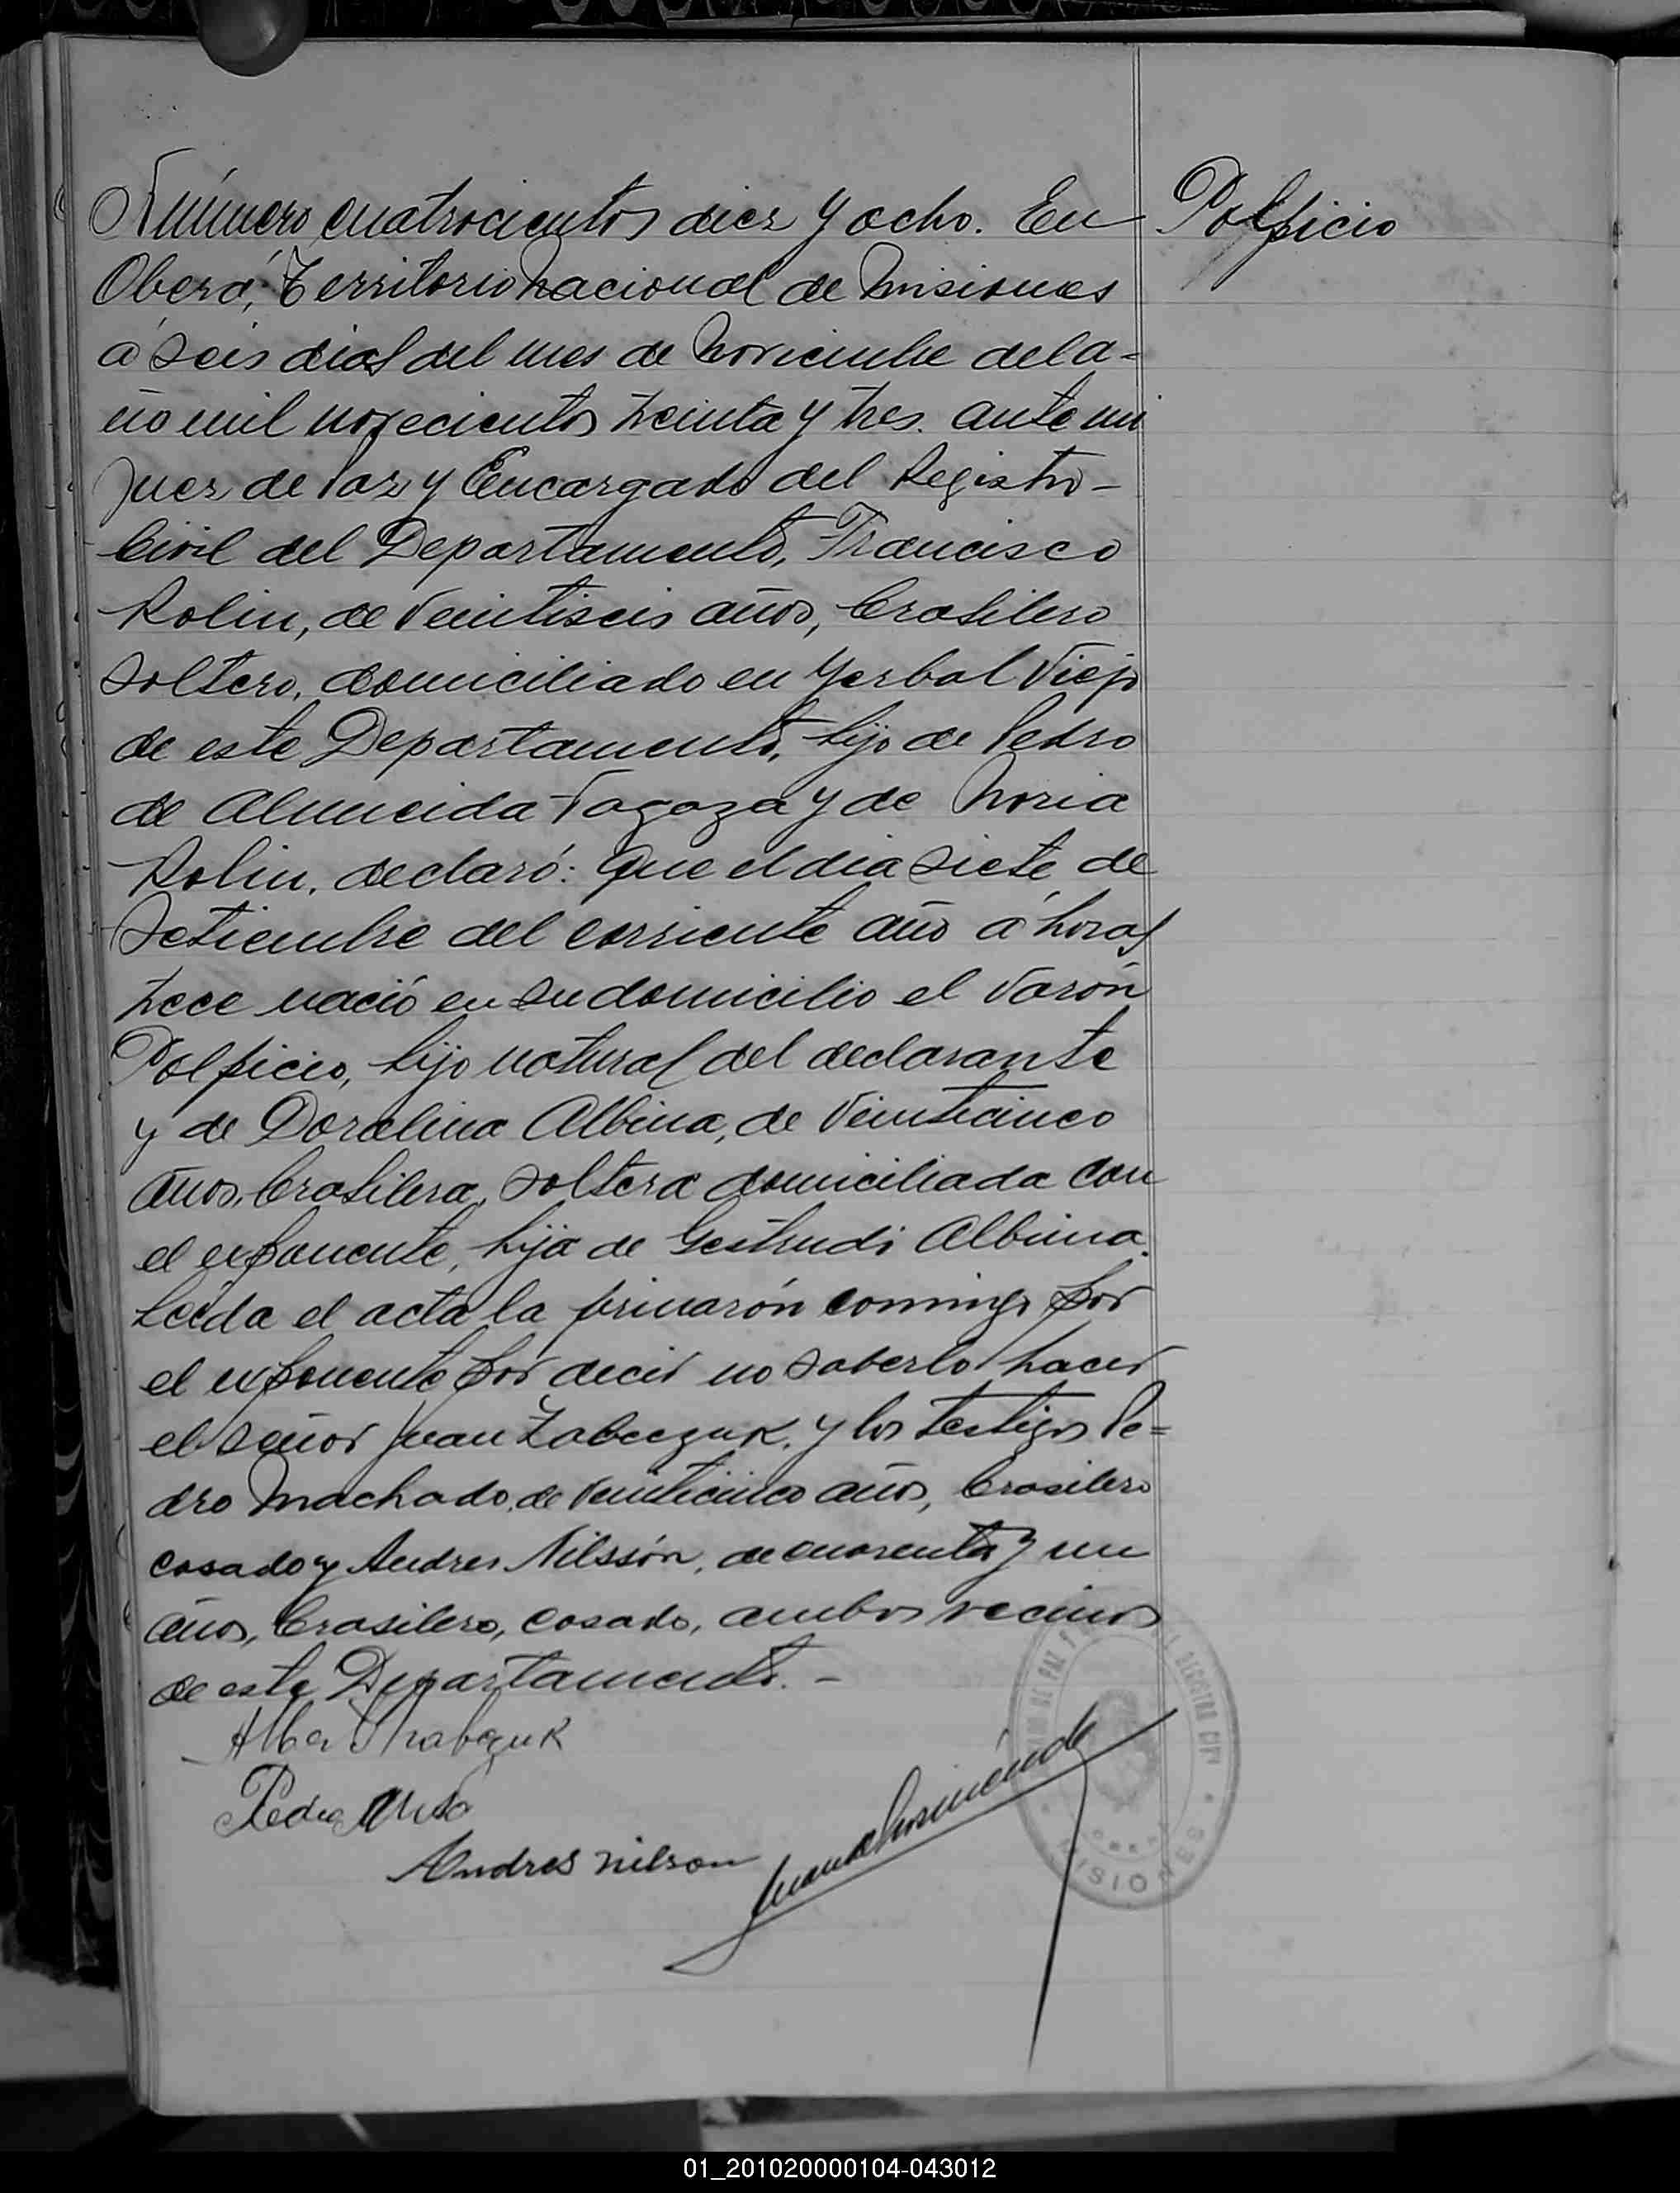 Número cuatrocientos diez y ocho. En
Polficio
Oberá, Territorio Nacional de Misiones
a seis dias del mes de Noviembre del a-
ño mil novecientos treinta y tres. ante mi
Juez de Paz y Encargado del Registro-
Civil del Departamento, Francisco
Rolin, de veintiseis años, brasilero
soltero, domiciliado en Yerbal Viejo
de este Departamento, hijo de Pedro
de Almeida y de Noria
Rolin, declaró: Que el dia siete de
Setiembre del corriente año á horas
trece nació en su domicilio el varón
Polficio, hijo natural del declarante
y de Doralina Albina, de veinticinco
años, brasilera, soltera domiciliada con
el exponente, hija de Gertrudi Albina.
Leida el acta la firmarón conmigo por
el exponente por decir no saberlo hacer
el señor Juan y los testigos Pe=
dro Machado, de veinticinco años, brasilero
casado y Andres Nilssón, de cuarenta y un
años, brasilero, casado, ambos vecinos
de este Departamento.-
Pedro
Andres nilson
REGISTRO CIVIL
MISIONES
01_201020000104-043012